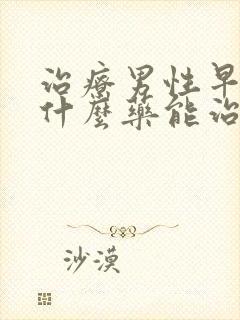 治療男性早
什麼藥能治
沙漠